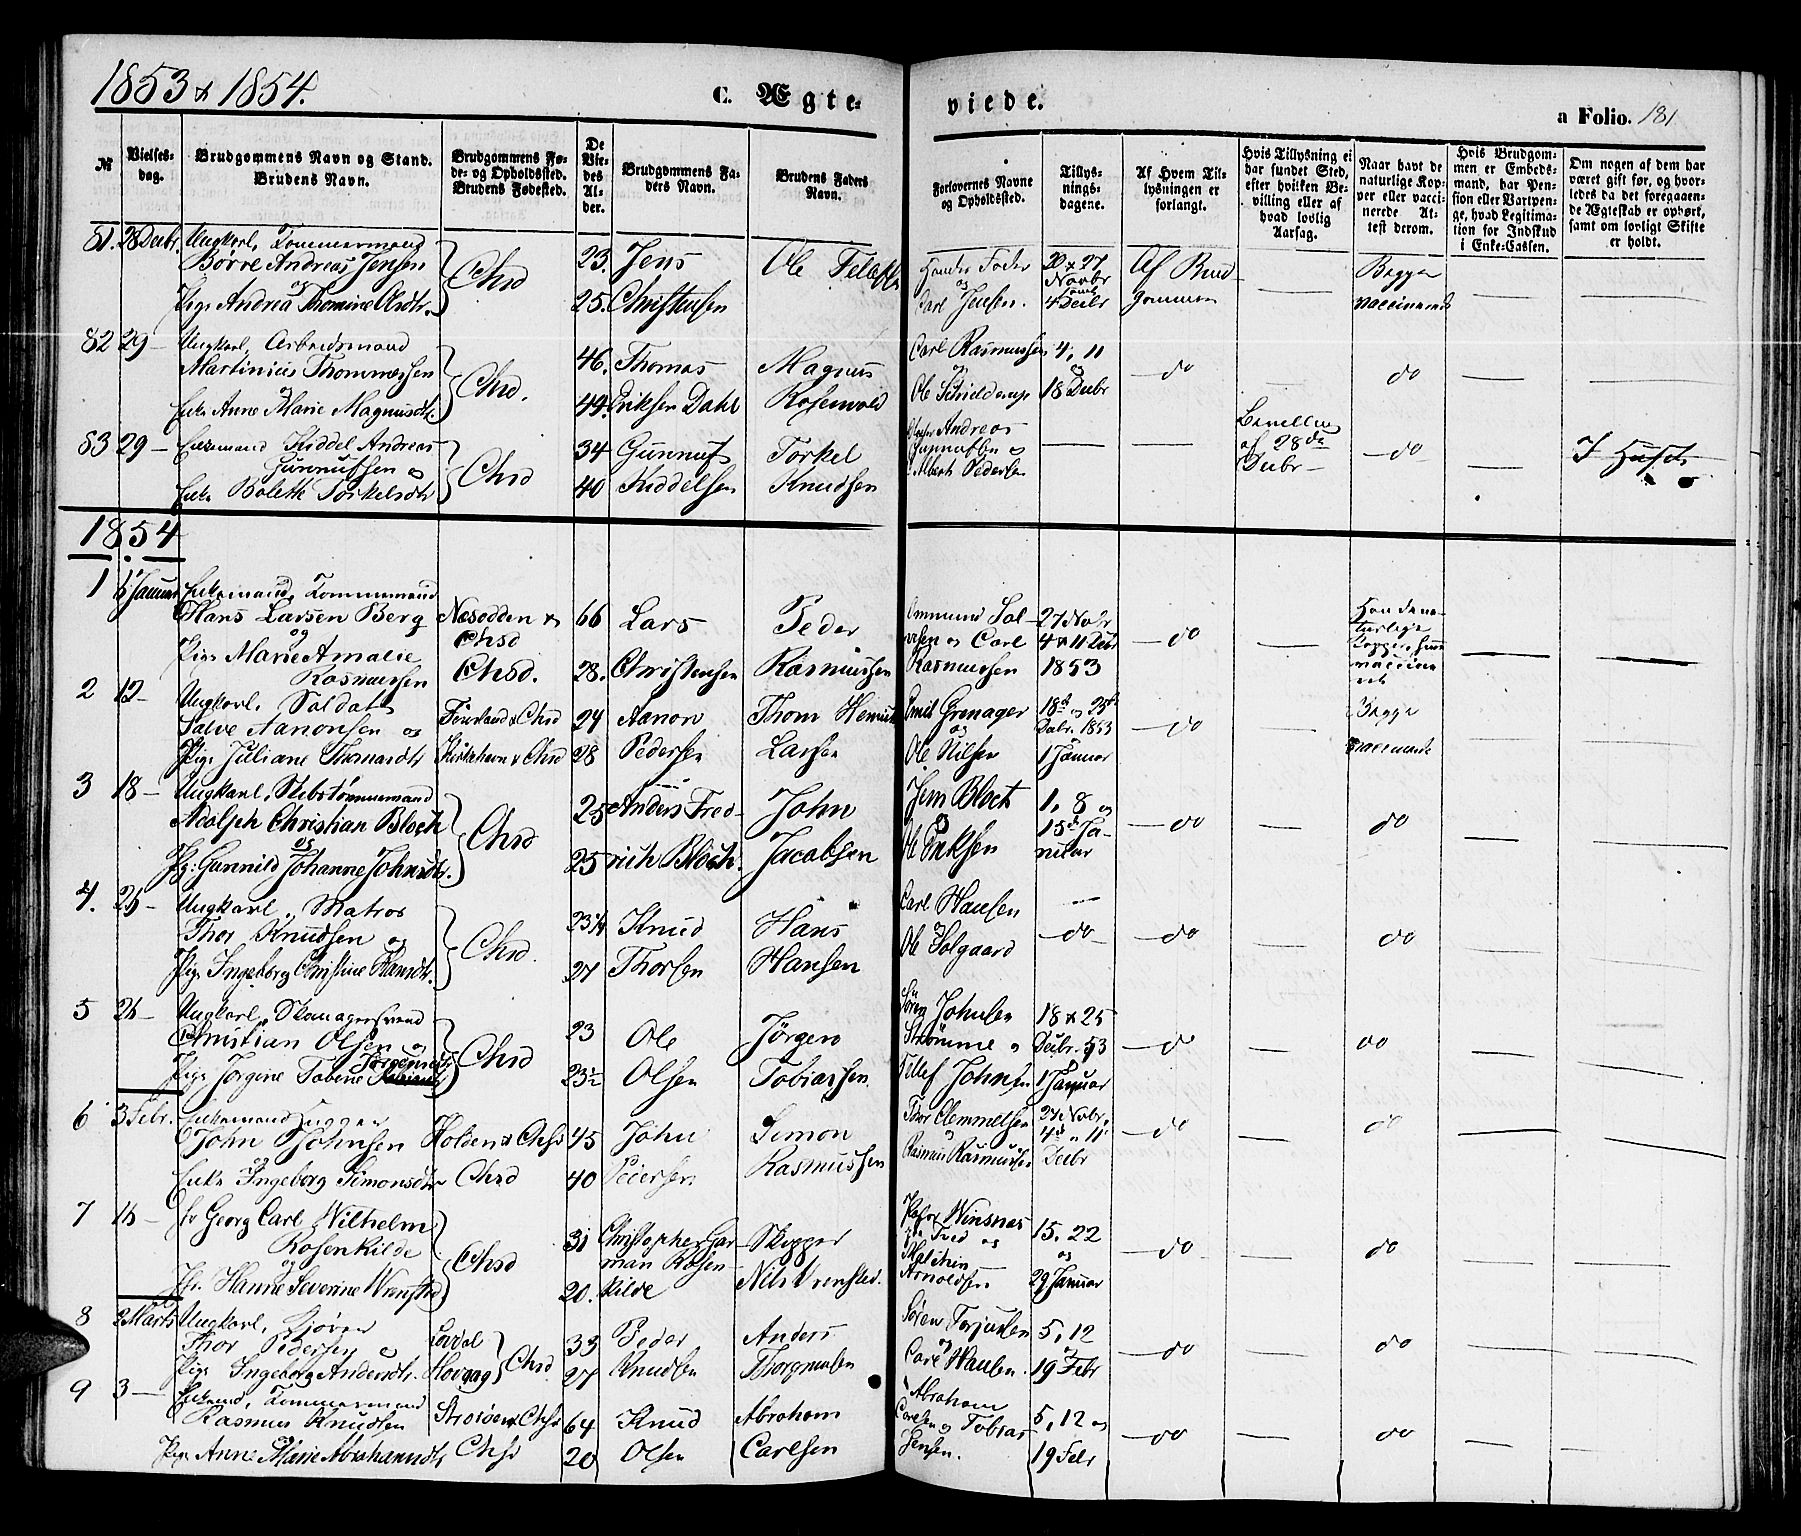 1853 & 1854.
C. Ægte-
viede.
a Folio. 181
№
Vielses-
dag.
Brudgommens Navn og Stand.
Brudens Navn.
Brudgommens Fø-
de- og Opholdssted.
Brudens Fødested.
De
Vie-
des
Al-
der.
Brudgommens Fa-
ders Navn.
Brudens Faders
Navn.
Forlovernes Navne
og Opholdssted.
Tillys-
nings-
dagene.
Af Hvem Til-
lysningen er
forlangt.
Hvis Tillysning ei
har fundet Sted,
efter hvilken Be-
villing eller af
hvad lovlig
Aarsag.
Naar havt de
naturlige Kop-
per eller vacci-
nerede At-
test derom.
Hvis Brudgom-
men er Embeds-
mand, har Pen-
sion eller Vartpen-
ge, hvad Legitima-
tion for Indskud
i Enke-Cassen.
Om nogen af dem har
været gift før, og hvor-
ledes da det foregaaen-
de Ægteskab er ophørt,
samt om lovligt Skifte
er holdt.
81. 28 Decbr. Ungkarl, Tømmermand
Børre Andreas Jensen
og
Pige Andrea Thomine Olsdtr.
Chsd
23. Jens
25. Christensen
Ole
og
Carl Jensen.
20 & 27
Novbr
samt
4 Decbr
Af Brud
gommen
Begge
vaccinerede
82 29 — Ungkarl, Arbeidsmand
Martinius Thommessen
og
Enke Anne Marie Magnusdtr.
Chsd.
46. Thomas
49. Eriksen Dahl
Magnus
Rosenvold
Carl Rasmussen
og
Ole
4, 11
og
18 Decbr
do
do
83 29 — Enkemand Kiddel Andreas
Gunnufsen og
Enke Boleth Torkelsdtr
Chsd
34 Gunnuf
40 Kiddelsen
Torkel
Knudsen
Andreas
Gunnufsen og
Pedersen
Bevilling
af 28de
Decbr
do
1854
1 Januar Enkemand, Tømmermand
Hans Larsen Berg
og
Pige Marie Amalie
Rasmussen
Nesodden &
Chsd
Chsd.
66 Lars
28. Christensen
Peder
Rasmussen
og Carl
Rasmussen
27 Novbr
4 & 11 Decbr
1853
do
2 12 — Ungkarl, Soldat
Salve Aanonsen og
Pige Juliane Thomasdtr
& Chsd
& Chsd
24 Aanon
28 Pedersen
Thom Henrik
Larsen
Emil Grenager
og
Ole Nilsen
18de og 25de
Decbr. 1853
1 Januar
do
Begge
vaccinerede
3 18 — Ungkarl, Skibstømmermand
Adolph Christian Bloch
og
Pige Gunnild Johanne Johnsdtr.
Chsd
25 Anders Fred-
25 rich Bloch.
John
Jacobsen
Jim Bloch
og
Ole Eriksen
1, 8 og
15de Ja-
nuar
do
do
4. Ungkarl, Matros
Thor Knudsen og
Pige Ingeborg Christine Hansdtr.
Chsd.
23¼ Knud
27 Thorsen
Hans
Hansen
Carl Hansen
Ole Solgaard
do
do
do
5 Ungkarl, Skomagersvend
Christian Olsen og
Pige Jørgine Tobine Jørgensdtr
Chsd
23 Ole
23½ Olsen
Jørgen
Tobiassen
Søren Johnsen
Strømme og
Tellef Johnsen
18 & 25
Decbr. 53
1 Januar
do
do
6 3 Febr. Enkemand
John Johnsen
og
Enke Ingeborg Simonsdtr
Holden & Chsd
Chsd
45 John
40 Peiersen
Simon
Rasmussen
Thor Clemmetsen
og
Rasmus Rasmussen
27 Novbr.
4de 11
Decbr
do
do
7 Georg Carl Wilhelm
Rosenkilde
og
Fr. Hanne Severine Wrensted
Chsd
31 Christopher Gar-
man Rosen-
20. kilde
Skipper
Nils Wrensted.
Winsnes
og
Arnoldsen
15, 22
og
29 Januar
do
do
8 2 Marts Ungkarl,
Thor Pedersen og
Pige Ingeborg Andersdtr.
Høvaag
Chsd
33 Peder
27 Knudsen
Anders
Thorgmelsen
Søren Torjussen
og
Carl Hansen.
5, 12
og
19 Febr
do
do
9 3 — Tømmermand
Rasmus Knudsen
og
Pige Anne Marie Abrahamsdtr
& Chsd
Chsd
64 Knud
20 Olsen
Abraham
Carlsen
Abraham
Carlsen og Tobias
Jensen.
5, 12 og
19 Febr
do
do